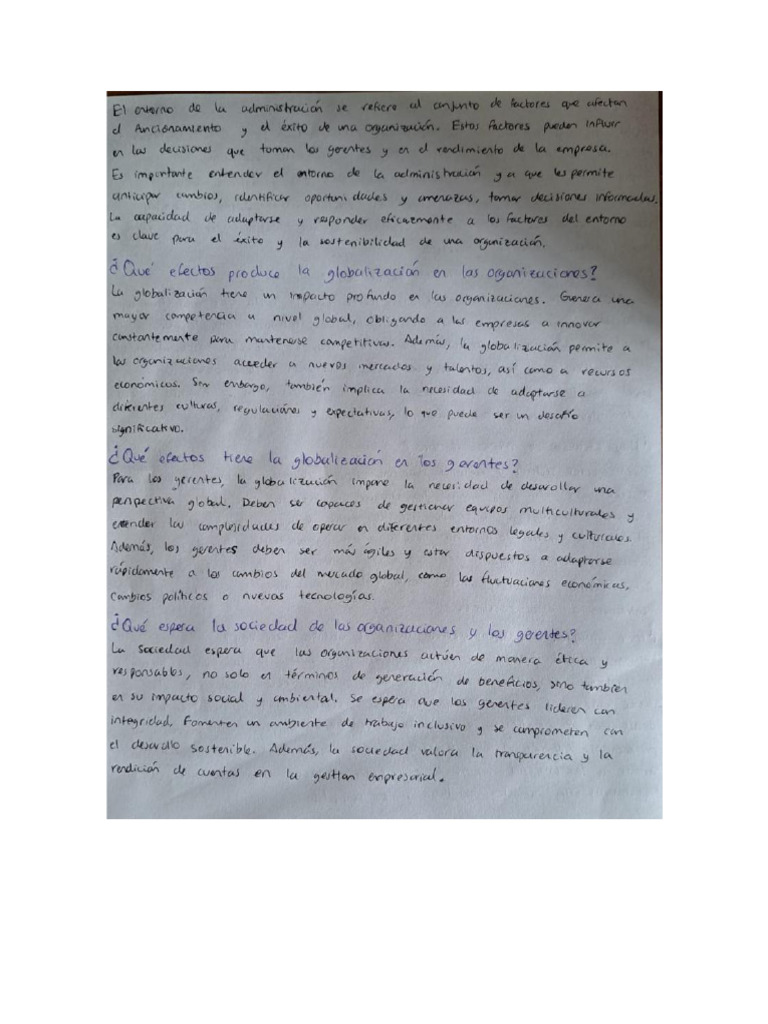 El entorno de la administración se refiere al conjunto de factores que afectan
el funcionamiento y el éxito de una organización. Estos factores pueden influir
en las decisiones que toman los gerentes y en el rendimiento de la empresa.
Es importante entender el entorno de la administración ya que les permite
anticipar cambios, identificar oportunidades y amenazas, tomar decisiones informadas.
La capacidad de adaptarse y responder eficazmente a los factores del entorno
es clave para el éxito y la sostenibilidad de una organización.
¿Qué efectos produce la globalización en las organizaciones?
La globalización tiene un impacto profundo en las organizaciones. Genera una
mayor competencia a nivel global, obligando a las empresas a innovar
constantemente para mantenerse competitivas. Además, la globalización permite a
las organizaciones acceder a nuevos mercados y talentos, así como a recursos
económicos. Sin embargo, también implica la necesidad de adaptarse a
diferentes culturas, regulaciones y expectativas, lo que puede ser un desafío
significativo.
¿Qué efectos tiene la globalización en los gerentes?
Para los gerentes, la globalización impone la necesidad de desarollar una
perspectiva global. Deben ser capaces de gestionar equipos multiculturales y
entender las complejidades de operar en diferentes entornos legales y culturales.
Además, los gerentes deben ser más ágiles y estar dispuestos a adaptarse
rápidamente a los cambios del mercado global, como las fluctuaciones económicas,
cambios políticos o nuevas tecnologías.
¿Qué espera la sociedad de las organizaciones y los gerentes?
La sociedad espera que las organizaciones actúen de manera ética y
responsables, no solo en términos de generación de beneficios, sino también
en su impacto social y ambiental. Se espera que los gerentes lideren con
integridad, fomenten un ambiente de trabajo inclusivo y se comprometen con
el desarollo sostenible. Además, la sociedad valora la transparencia y la
rendición de cuentas en la gestion empresarial.